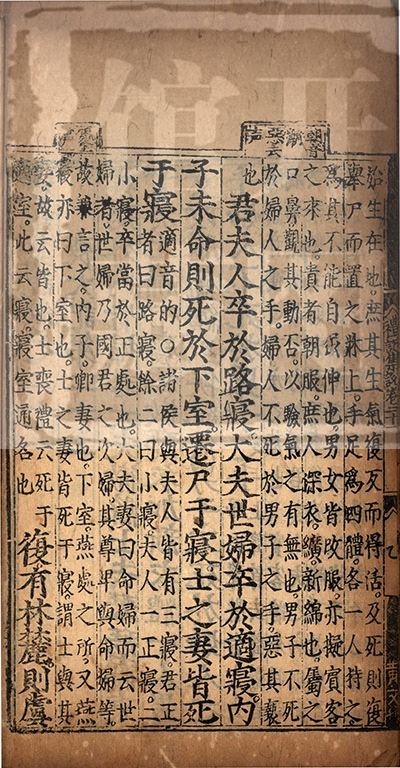 朝音
潮
惡去
声
處上
声
始生在地。庶其生氣復反而得活。及死則復
舉尸而置之牀上。手足爲四體。各一人持之。
爲其不能自屈伸也。男女皆改服。亦擬賓客
之來也。貴者朝服。庶人深衣。纊。新綿也。屬之
口鼻觀其動否以驗氣之有無也。男子不死
於婦人之手。婦人不死於男子之手。惡其褻
也 君夫人卒於路寢大夫世婦卒於適寢内
子未命則死於下室遷尸于寢士之妻皆死
于寢 適音的○諸侯與夫人皆有三寢。君正
者曰路寢。餘二曰小寢。夫人一正寢。二
小寢。卒當於正處也。大夫妻曰命婦而云世
婦者。世婦乃國君之次婦。其尊卑與命婦等。
故兼言之。内子。卿妻也。下室。燕處之所。又燕
寢亦曰下室也。士之妻皆死于寢。謂士與其
妻。故云皆也。士喪禮云死于
適室。此云寢。寢室通名也 復有林麓。則虞